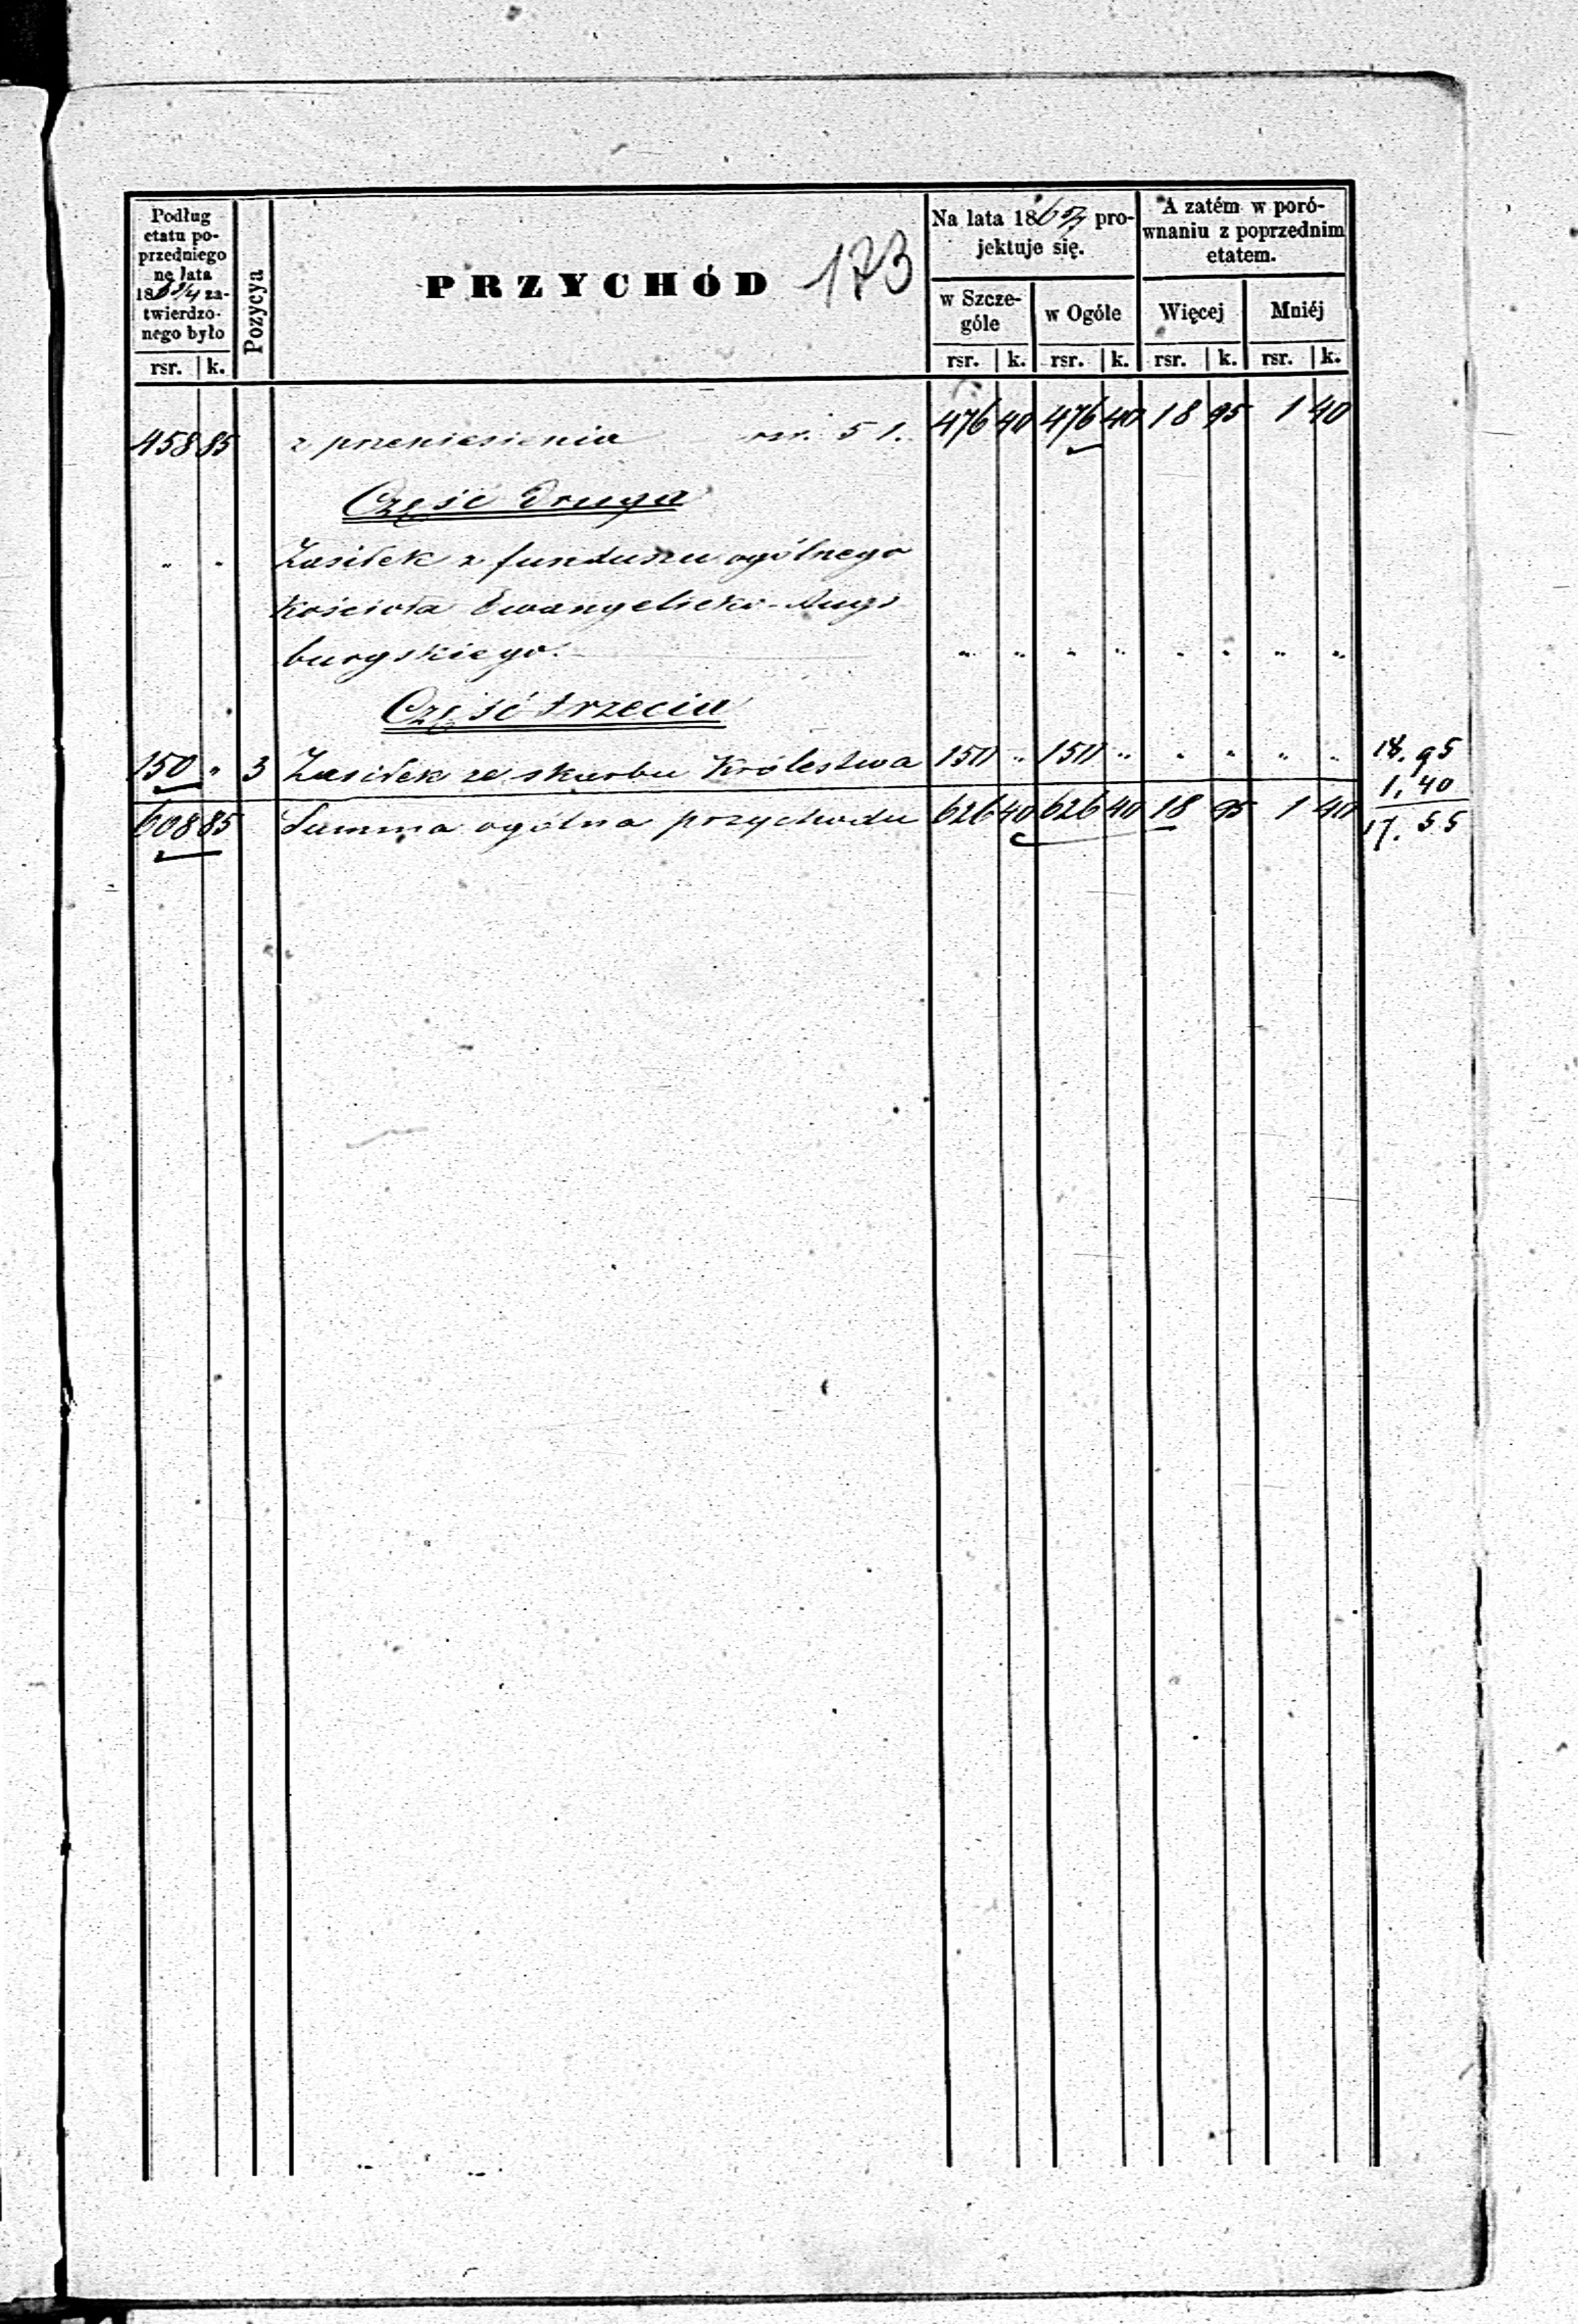 Podług
etatu po-
przedniego
na lata
18 za-
twierdzo-
nego było
rsr. k.
Pozycya
PRZYCHÓD
173
Na lata 18 pro-
jektuje się.
w Szcze-
góle
rsr. k.
w Ogóle
rsr. k.
A zatém w poró-
wnaniu z poprzednim
etatem.
Więcej
rsr. k.
Mniéj
rsr. k.
458 85 z przeniesienia rsr. 51. 476 40 476 40 18 95 1 40
Część Druga
" " Zasiłek z funduszu ogólnego
Kościoła Ewangelicko-Augs
burgskiego. " " " " " " " "
Część trzecia
150 " 3 Zasiłek ze skarbu Królestwa 150 " 150 " " " " "
608 85 Summa ogólna przychodu 626 40 626 40 18 95 1 40
18.95
1.40
17.55